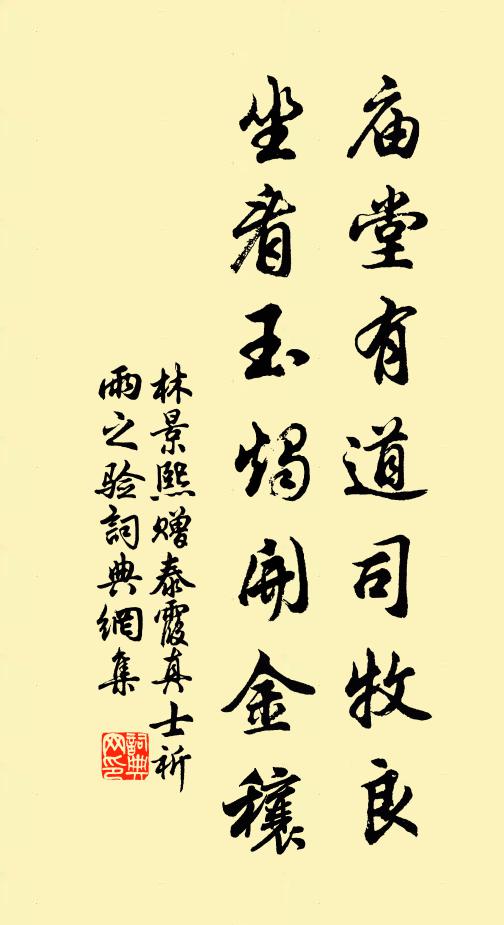 庙堂有道司牧良
坐看玉烛開金穰
林景熙赠泰霞真士祈
雨之验詞典網集
詞典网印